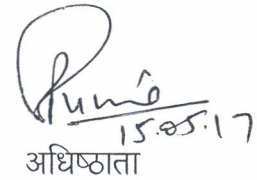 15.05.17
अधिष्ठाता